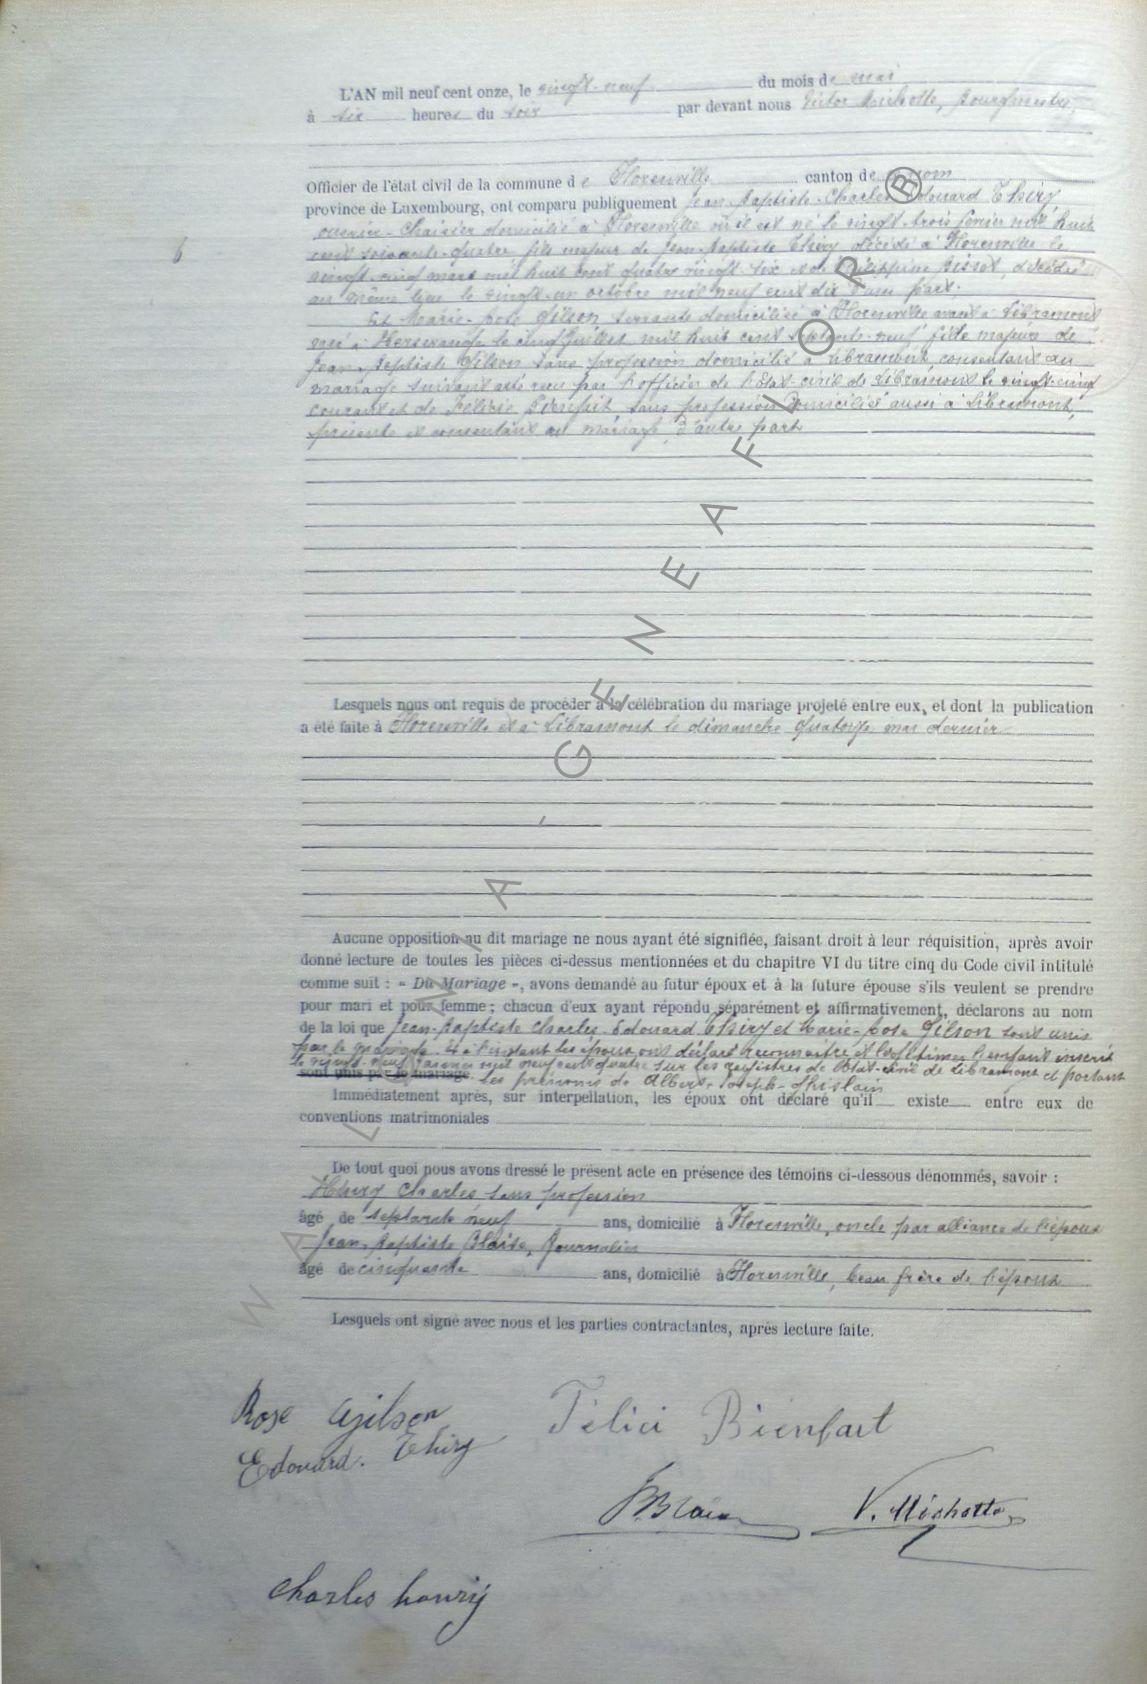 L'AN mil neuf cent onze, le vingt-neuf du mois de mai
à six heures du soir par devant nous Victor Michotte, bourgmestre,
Officier de l'état civil de la commune de Florenville canton de
province de Luxembourg, ont comparu publiquement Jean-Baptiste-Charles Edouard Thiry
ouvrier-chaisier domicilié à Florenville où il est né le vingt-trois février mil huit
6
cent soixante-quatre, fils majeur de Jean-Baptiste Thiry décédé à Florenville le
vingt-cinq mars mil huit cent quatre vingt six et de Philippine Bisset, décédée
au même lieu le vingt-un octobre mil neuf cent dix d'une part.
Et Marie-Rose Gilson servante domiciliée à Florenville avant à Libramont
née à Herserange le cinq juillet mil huit cent septante-neuf fille majeure de
Jean-Baptiste Gilson sans profession domicilié à Libramont consentant au
mariage suivant acte reçu par l'officier de l'état-civil de Libramont le vingt-cinq
courant et de Félicie Bienfait sans profession domiciliée aussi à Libramont,
présente et consentant au mariage, d'autre part
Lesquels nous ont requis de procéder à la célébration du mariage projeté entre eux, et dont la publication
a été faite à Florenville et à Libramont le dimanche quatorze mai dernier
Aucune opposition au dit mariage ne nous ayant été signifiée, faisant droit à leur réquisition, après avoir
donné lecture de toutes les pièces ci-dessus mentionnées et du chapitre VI du titre cinq du Code civil intitulé
comme suit : « Du Mariage », avons demandé au futur époux et à la future épouse s'ils veulent se prendre
pour mari et pour femme ; chacun d'eux ayant répondu séparément et affirmativement, déclarons au nom
de la loi que Jean-Baptiste Charles-Edouard Thiry et Marie-Rose Gilson sont unis
par le mariage. Et à l'instant les époux ont déclaré reconnaître et légitimer l'enfant inscrit
le vingt-neuf janvier mil neuf cent quatre sur les registres de l'état-civil de Libramont et portant
sont unis par le mariage. les prénoms de Albert-Joseph-Ghislain
Immédiatement après, sur interpellation, les époux ont déclaré qu'il existe entre eux de
conventions matrimoniales
De tout quoi nous avons dressé le présent acte en présence des témoins ci-dessous dénommés, savoir :
Charles sans profession
âgé de septante neuf ans, domicilié à Florenville, oncle par alliance de l'époux
Jean-Baptiste Blaise, Journalier
âgé de cinquante ans, domicilié à Florenville, beau frère de l'époux
Lesquels ont signé avec nous et les parties contractantes, après lecture faite.
Rose Gilson
Félici Bienfait
Edouard. Thiry
V. Michotte
Charles
WALLONIA-GENEAFLOR®